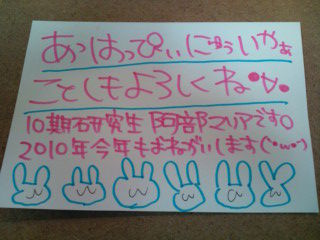 あっはっぴぃにゅぅいやぁ
ことしもよろしくね•v•
10期研究生 阿部マリアです○
2010年今年もおねがいします(•ω•)